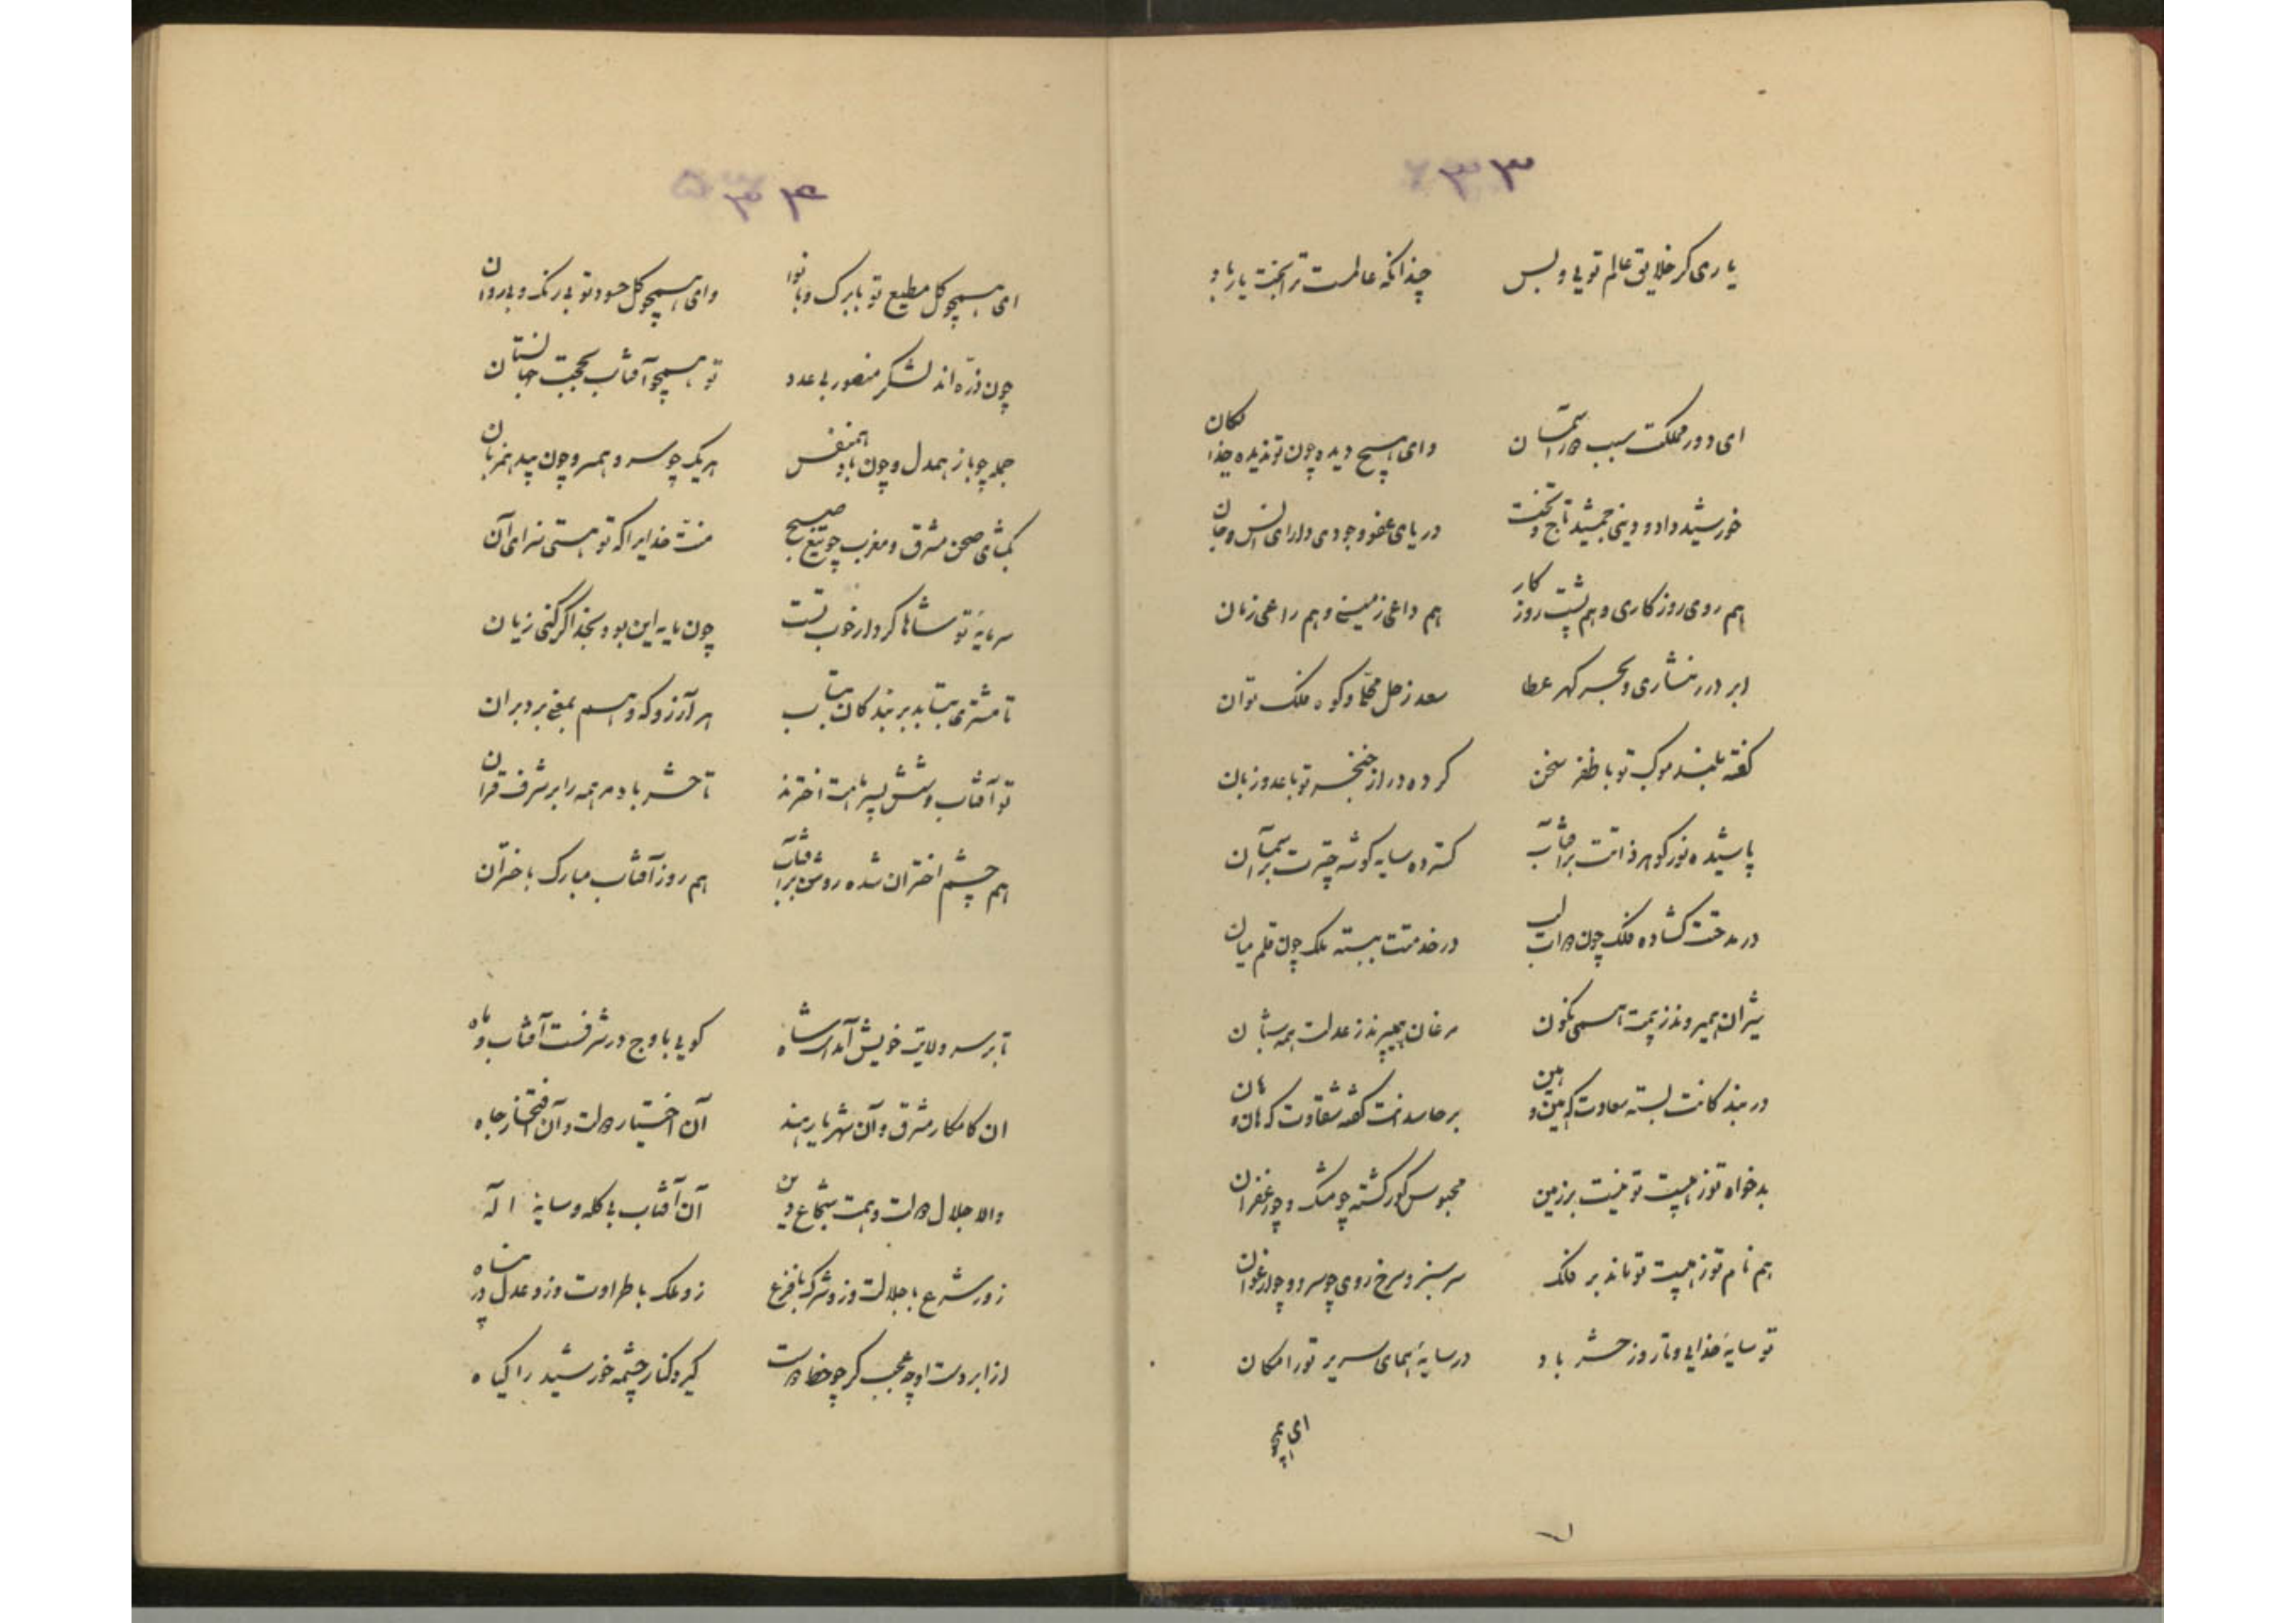 ۳۳
یاری‌گر خلایق عالم تویی و بس چندانکه عالمست ترا بخت یار باد
ای دور مملکت سبب دور آسمان وای هیچ دیده چون تو ندیده خدایکان
خورشید داد و دینی جمشید تاج و تخت دریای عفو وجودی دارای انس و جان
هم روی روزکاری و هم پشت روز کار هم داعی زمینی و هم راعی زمان
ابر درر نثاری و بحر کهر عطا سعد زحل محلا و کوه فلک توان
کفته بلند موکب تو با ظفر سخن کرده دراز خنجر تو با عدو زبان
پاشیده نور کوهر ذاتت بر آفتاب کسترده سایه کوشه چترت بر آسمان
در مدحتت کشاده فلک چون دوات لب در خدمتت ببسته ملک چون قلم میان
شیران همی‌روند ز بیمت همی نکون مرغان همی‌پرند ز عدلت همه ستان
در بندکانت بسته سعادت که هین و هین بر حاسدانت کفته شقاوت که هان و هان
بدخواه تو ز هیبت تو نیست بر زمین محبوس کور کشته چو مشک و چو زعفران
هم نام تو ز هیبت تو ماند بر فلک سرسبز و سرخ روی چو سرو و چو ارغوان
تو سایه خدایی و تا روز حشر باد در سایه همای سریر تو را مکان
ای همچو
۳۴
ای همچو کل مطیع تو با برک و با نوا وای همچو کل حسود تو بی رنک و بی روان
چون ذره‌اند لشکر منصور بی عدد تو همچو آفتاب بحجت جهانستان
جمله چو باز همدل و چون باد همنفس هر یک چو سرو همسر و چون بید همزبان
بکشای صحن مشرق و مغرب چو تیغ صبح منت خدایرا که تو هستی سزای آن
سرمایه تو شاها کردار خوب تست چون مایه این بود بخدا کر کنی زیان
تا مشتری بتابد بر بندکان بتاب هر آرزو که وهم بمعنی برد بران
تو آفتاب و شش پسر هشت اخترند تا حشر باد مر همه را بر شرف قران
هم چشم اختران شده روشن بر آفتاب هم روز آفتاب مبارک باختران
تا بر سر ولایت خویش آمد است شاه کویی باوج در شرفست آفتاب و ماه
ان کامکار مشرق و آن شهریار هند آن اختیار دولت و آن افتخار جاه
والا جلال دولت و همت شجاع دین آن آفتاب بی کله و سایه اله
زو شرع با جلالت و زو شرک با فزع زو ملک با طراوت و زو عدل در پناه
از ابر دست او چه عجب کر چو خط دوست کیرد کنار چشمه خورشید را کیاه